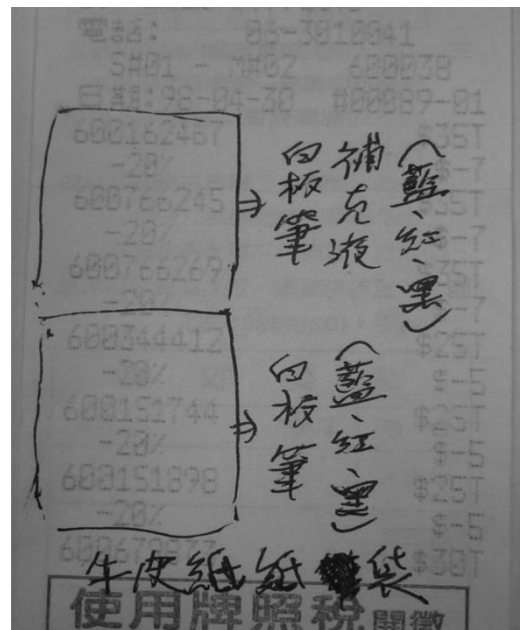 電話: 06-3010041
S#01 - M#02 600038
日期:98-04-30 #00089-01
600162467 $35T
-20% $-7
600766245 $35T
-20% $-7
600766269 $35T
-20% $-7
600344412 $25T
-20% $-5
600151744 $25T
-20% $-5
600151898 $25T
-20% $-5
$30T
⇒ 白板筆補充液(藍、紅、黑)
⇒ 白板筆(藍、紅、黑)
牛皮紙紙袋
使用牌照稅開徵